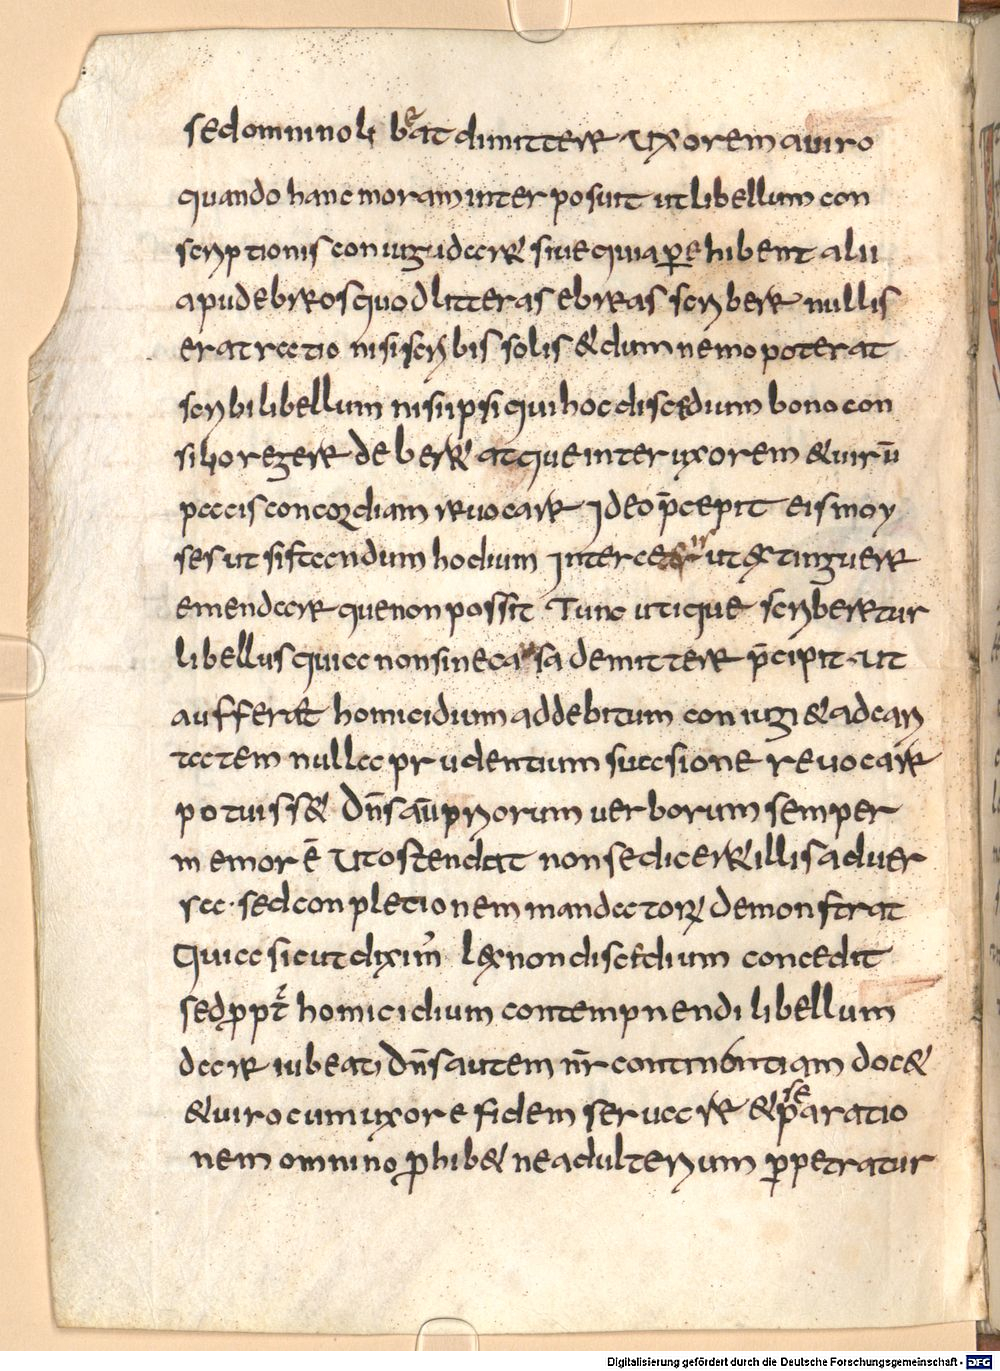 sedomnino li beat dimittere uxorem a uiro
quando hanc moram interposuit ut libellum con
scriptionis coniugi daret siue quia perhibent alii
apud ebreos quod litteras ebreas scribere nullis
erat rectio nisi scribis solis & dum nemo poterat
scribi libellum nisi ipsi qui hoc discedium bono con
silio regere deberet atque inter uxorem & uirū
pacis concordiam reuocare Ideo p̄cepit eis moy
ses ut si ftandum hodium ut extinguere
emendare que non possit Tunc utique scriberetur
libellus quia non sine causa demittere p̄cipit ut
aufferat homicidium ad debitum coniugi & ad cari
tatem nulla prudentium succsione reuocare
potuiss& dn̄s aū priorum uerborum semper
memor ē Ut ostendat non se dicere illis aduer
sa· sed conpletionem mandatorum demonstrat
Quia sicut diximꝰ lex non discidium concedit
sed ꝓpt̄ homicidium contempnendi libellum
dare iubeat Dn̄s autem nr̄ continentiam doc&
& uiro cum uxore fidem seruare & separatio
nem omnino ꝓhib& ne adulterium ꝑpetratur
Digitalisierung gefördert durch die Deutsche Forschungsgemeinschaft - DFG